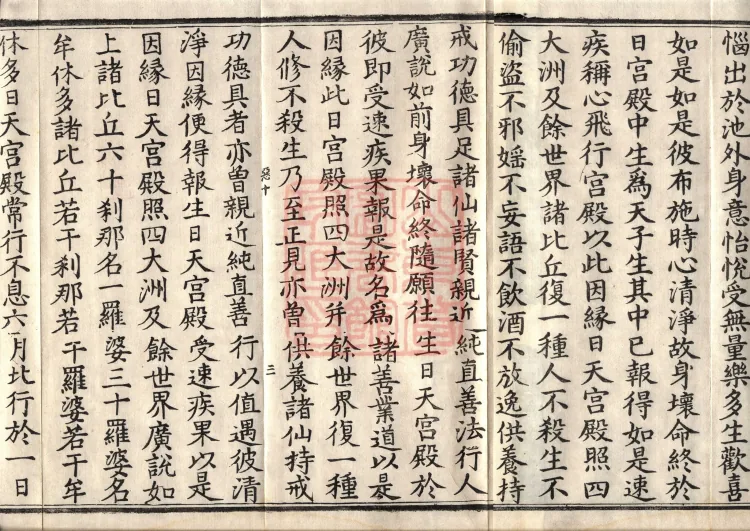 惱出於池外身意怡悅受無量樂多生歡喜
如是如是彼布施時心清淨故身壞命終於
日宮殿中生爲天子生其中已報得如是速
疾稱心飛行宮殿以此因緣日天宮殿照四
大洲及餘世界諸比丘復一種人不殺生不
偷盜不邪婬不妄語不飲酒不放逸供養持
戒功德具足諸仙諸賢親近純直善法行人
廣說如前身壞命終隨願往生日天宮殿於
彼即受速疾果報是故名爲諸善業道以是
因緣此日宮殿照四大洲并餘世界復一種
人修不殺生乃至正見亦曽供養諸仙持戒
功德具者亦曾親近純直善行以值遇彼清
淨因緣便得報生日天宮殿受速疾果以是
因緣日天宮殿照四大洲及餘世界廣說如
上諸比丘六十刹那名一羅婆三十羅婆名
牟休多諸比丘若干刹那若干羅婆若干牟
休多日天宮殿常行不息六月北行於一日